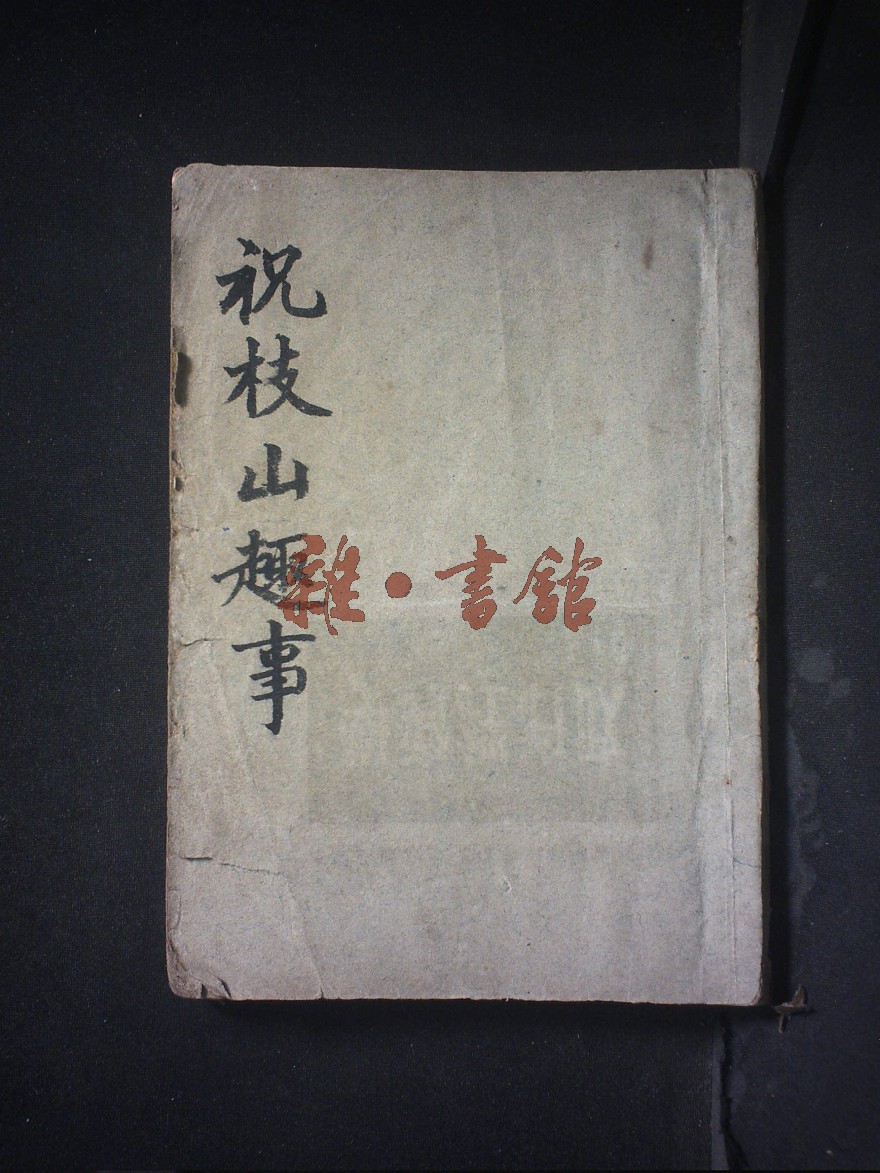 祝枝山趣事
雜·書館